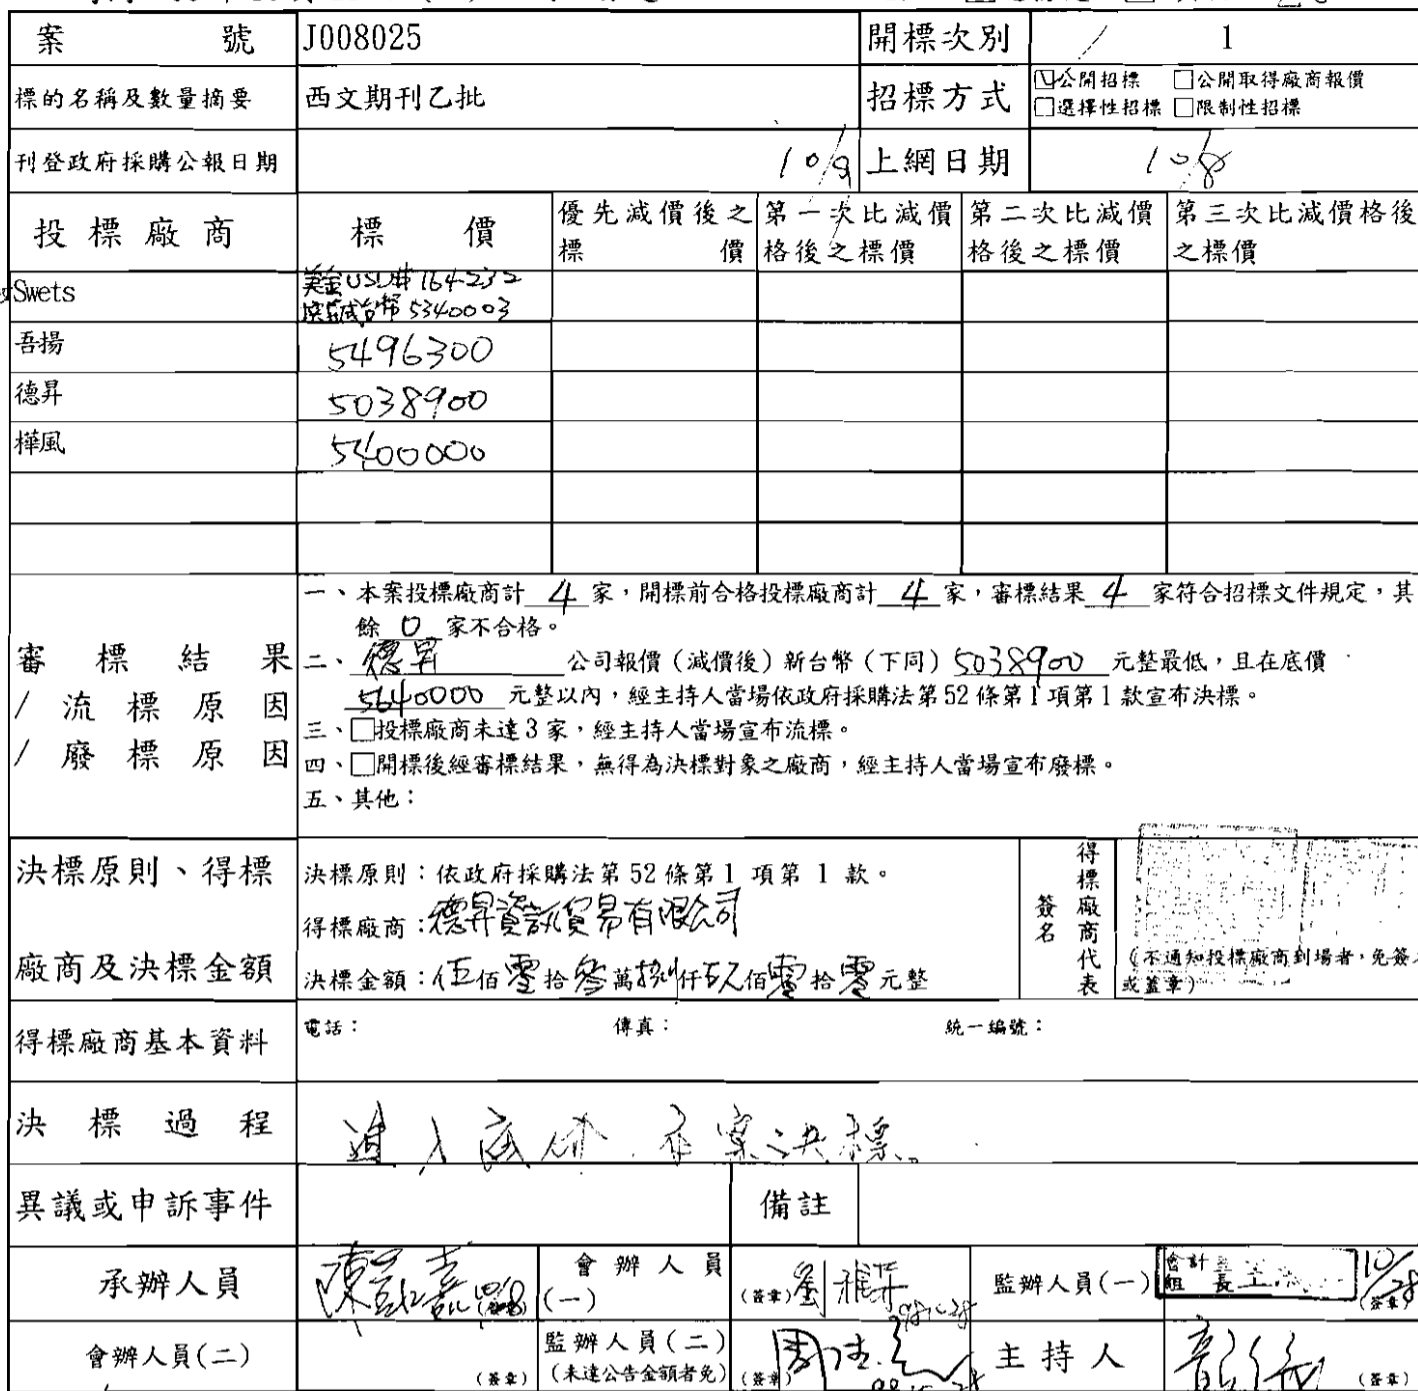 案號 J008025 開標次別 1
標的名稱及數量摘要 西文期刊乙批 招標方式 ☑公開招標 □公開取得廠商報價
□選擇性招標 □限制性招標
刊登政府採購公報日期 10/9 上網日期 10/8
投標廠商 標價 優先減價後之標價 第一次比減價格後之標價 第二次比減價格後之標價 第三次比減價格後之標價
Swets 美金USD$164232
台幣5340003
吾揚 5496300
德昇 5038900
樺風 5400000
審標結果
/流標原因
/廢標原因
一、本案投標廠商計 4 家，開標前合格投標廠商計 4 家，審標結果 4 家符合招標文件規定，其
餘 0 家不合格。
二、德昇 公司報價（減價後）新台幣（下同）5038900 元整最低，且在底價
5640000 元整以內，經主持人當場依政府採購法第52條第1項第1款宣布決標。
三、□投標廠商未達3家，經主持人當場宣布流標。
四、□開標後經審標結果，無得為決標對象之廠商，經主持人當場宣布廢標。
五、其他：
決標原則、得標
廠商及決標金額
決標原則：依政府採購法第52條第1項第1款。
得標廠商：德昇資訊貿易有限公司
決標金額：伍佰零拾參萬捌仟玖佰零拾零元整
得標廠商代表
簽名
（不通知投標廠商到場者，免簽
或蓋章）
得標廠商基本資料 電話： 傳真： 統一編號：
決標過程 進入底價，本案決標。
異議或申訴事件 備註
承辦人員 會辦人員(一) (簽章) 監辦人員(一) 會計組長 10/28 (簽章)
會辦人員(二) (簽章) 監辦人員(二)
(未達公告金額者免) (簽章) 主持人 (簽章)